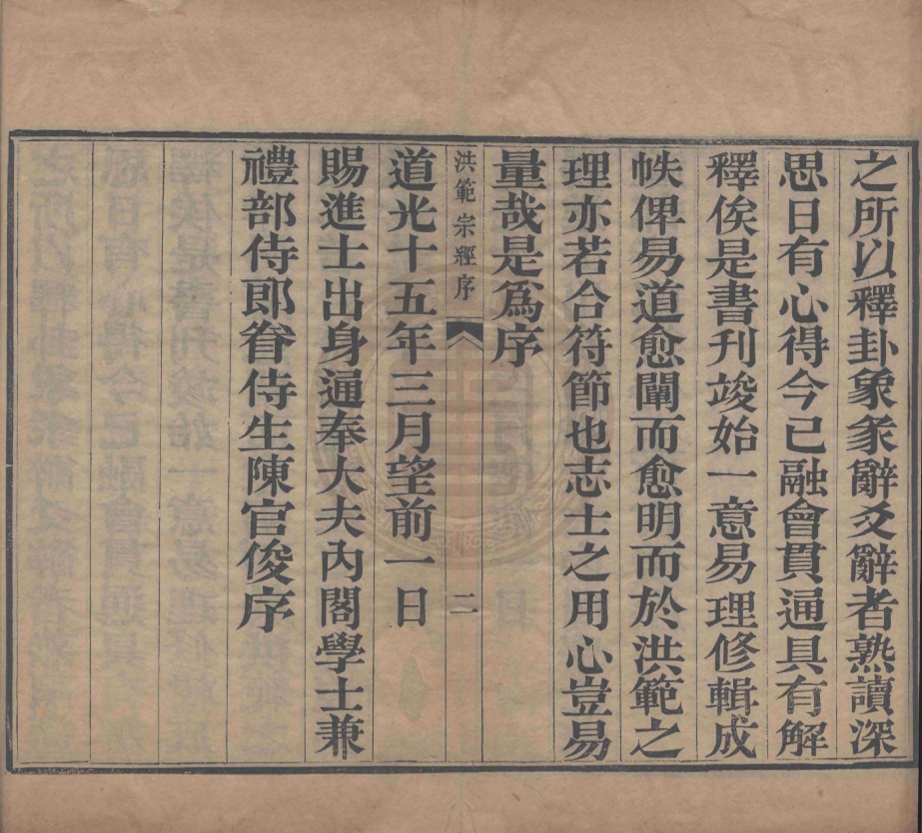 之所以釋卦象彖辭爻辭者熟讀深
思日有心得今已融會貫通具有解
釋俟是書刊竣始一意易理修輯成
帙俾易道愈闡而愈明而於洪範之
理亦若合符節也志士之用心豈易
量哉是爲序
洪範宗經序 二
道光十五年三月望前一日
賜進士出身通奉大夫內閣學士兼
禮部侍郎眷侍生陳官俊序